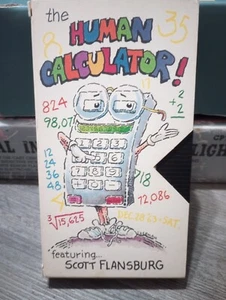 the
HUMAN
CALCULATOR!
8
35
2
+2
824
98,07
12
24
36
48
18
72,086
3√15,625
DEC 28 23 = SAT.
featuring...
SCOTT FLANSBURG
AL IN
LIGH